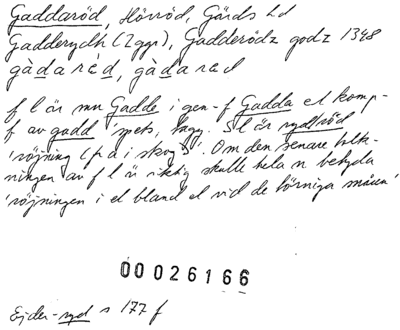 Gaddaröd, Hörröd, Gärds hd
Gadderydh (2 ggr), Gadderödz godz 1348
gàdaréd, gàdared
f l är mn Gadde i gen-f Gadda el komp-
f av gadd 'spets, tagg'. S l är ryd/röd
'röjning (på i skog)'. Om den senare tolk-
ningen av f l är riktig skulle hela n betyda
'röjningen i el bland el vid de törniga snåren'
00026166
Ejder-ryd s 177 f